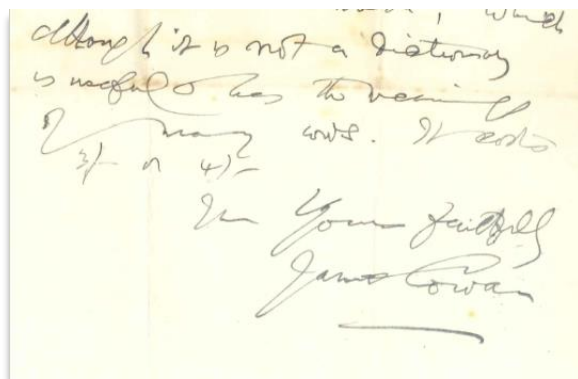 which
although it is not a dictionary
is useful & has the meanings
of many words. It costs
3/- or 4/-
I'm Yours faithfully
James Cowan